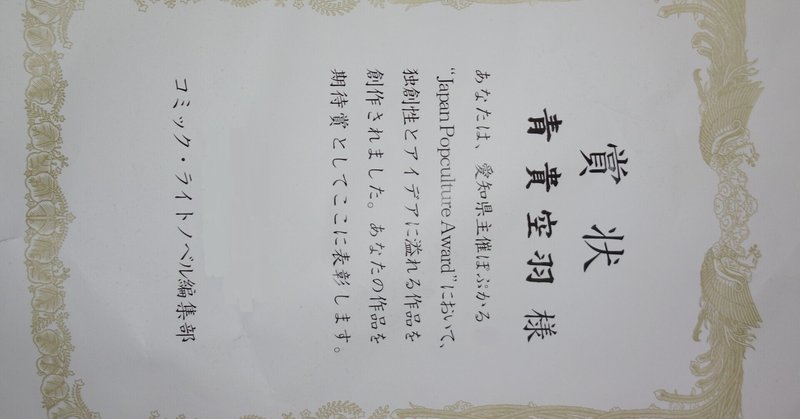 賞状
青貴空羽 様
あなたは、愛知県主催ぽぷかる
“Japan Popculture Award”において、
独創性とアイデアに溢れる作品を
創作されました。あなたの作品を
期待賞としてここに表彰します。
コミック・ライトノベル編集部